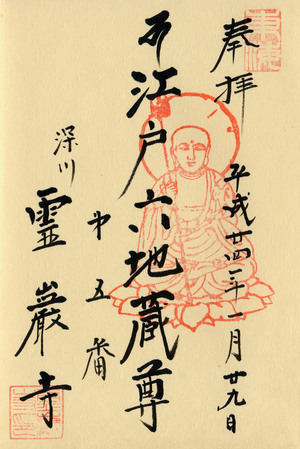 奉拝
平成廿四年一月廿九日
江戸六地蔵尊
第五番
深川
霊巌寺